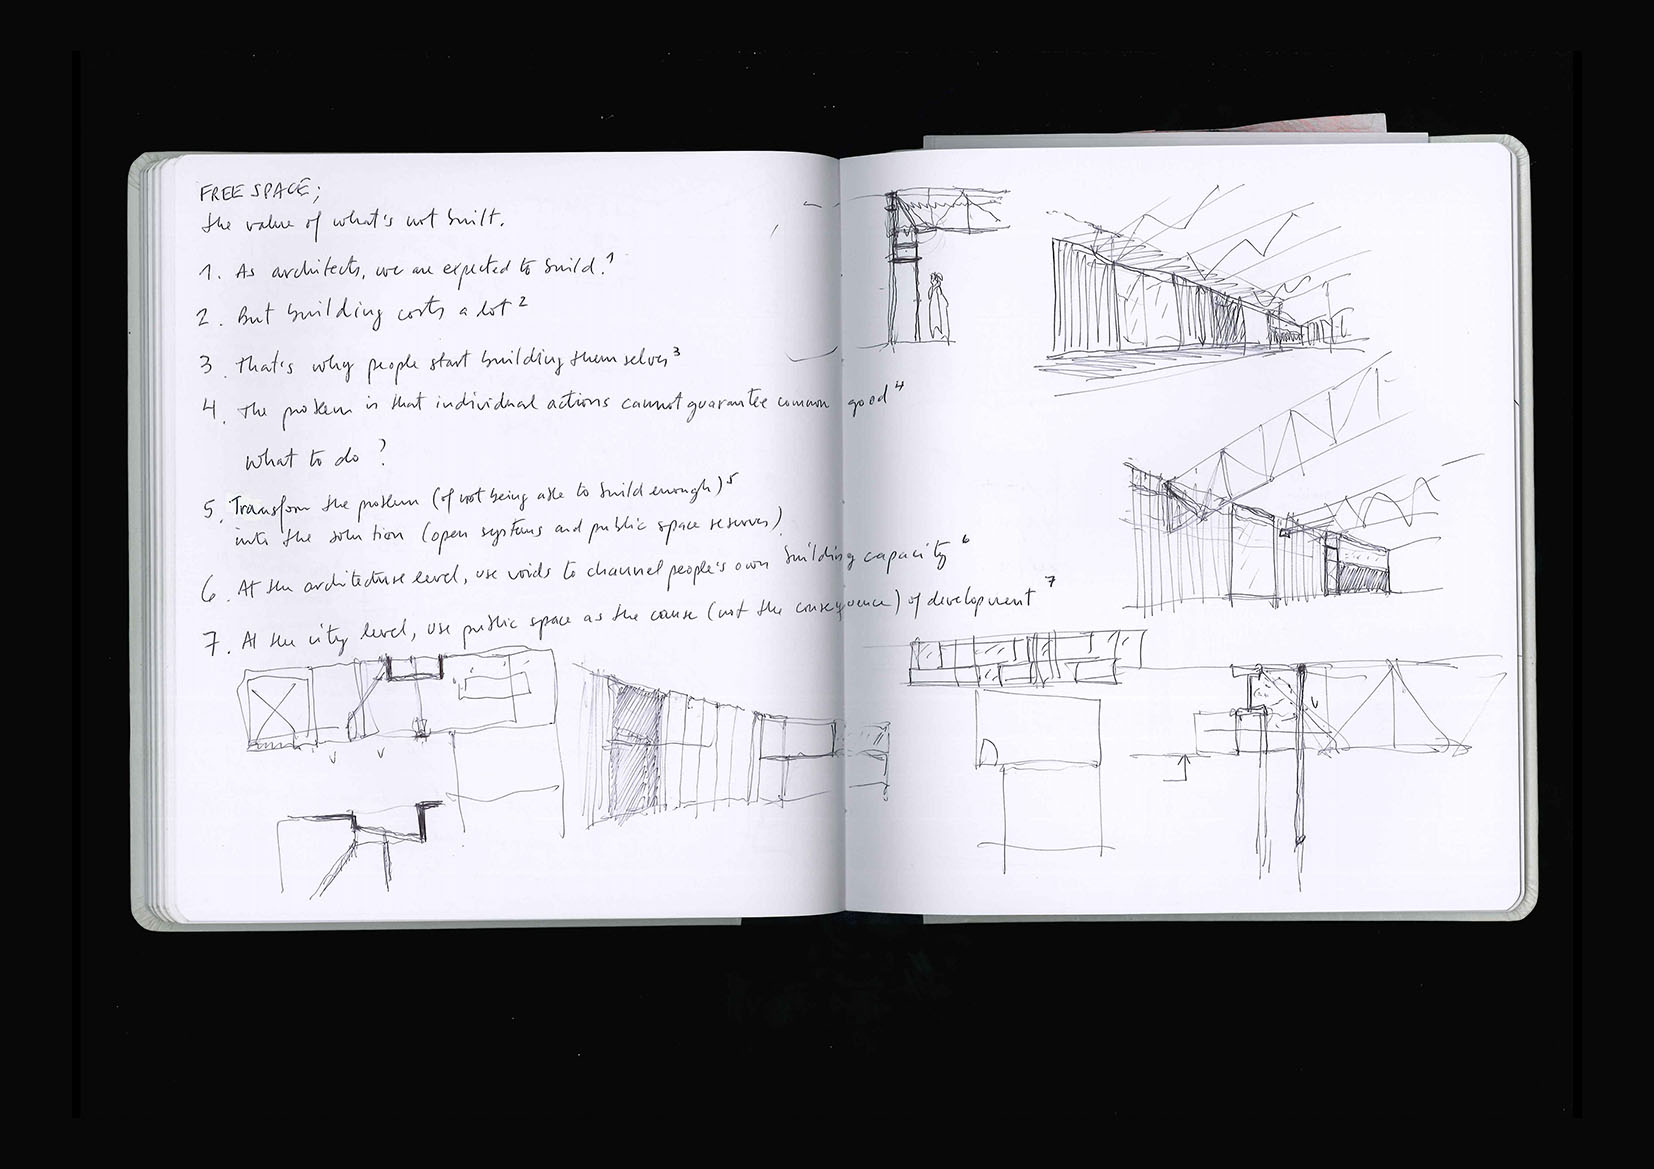 FREE SPACE;
the value of what's not built.
1. As architects, we are expected to build.1
2. But building costs a lot 2
3. That's why people start building themselves 3
4. The problem is that individual actions cannot guarantee common good 4
What to do ?
5. Transform the problem (of not being able to build enough) 5
into the solution (open systems and public space reserves)
6. At the architecture level, use voids to channel people's own building capacity 6
7. At the city level, use public space as the cause (not the consequence) of development 7